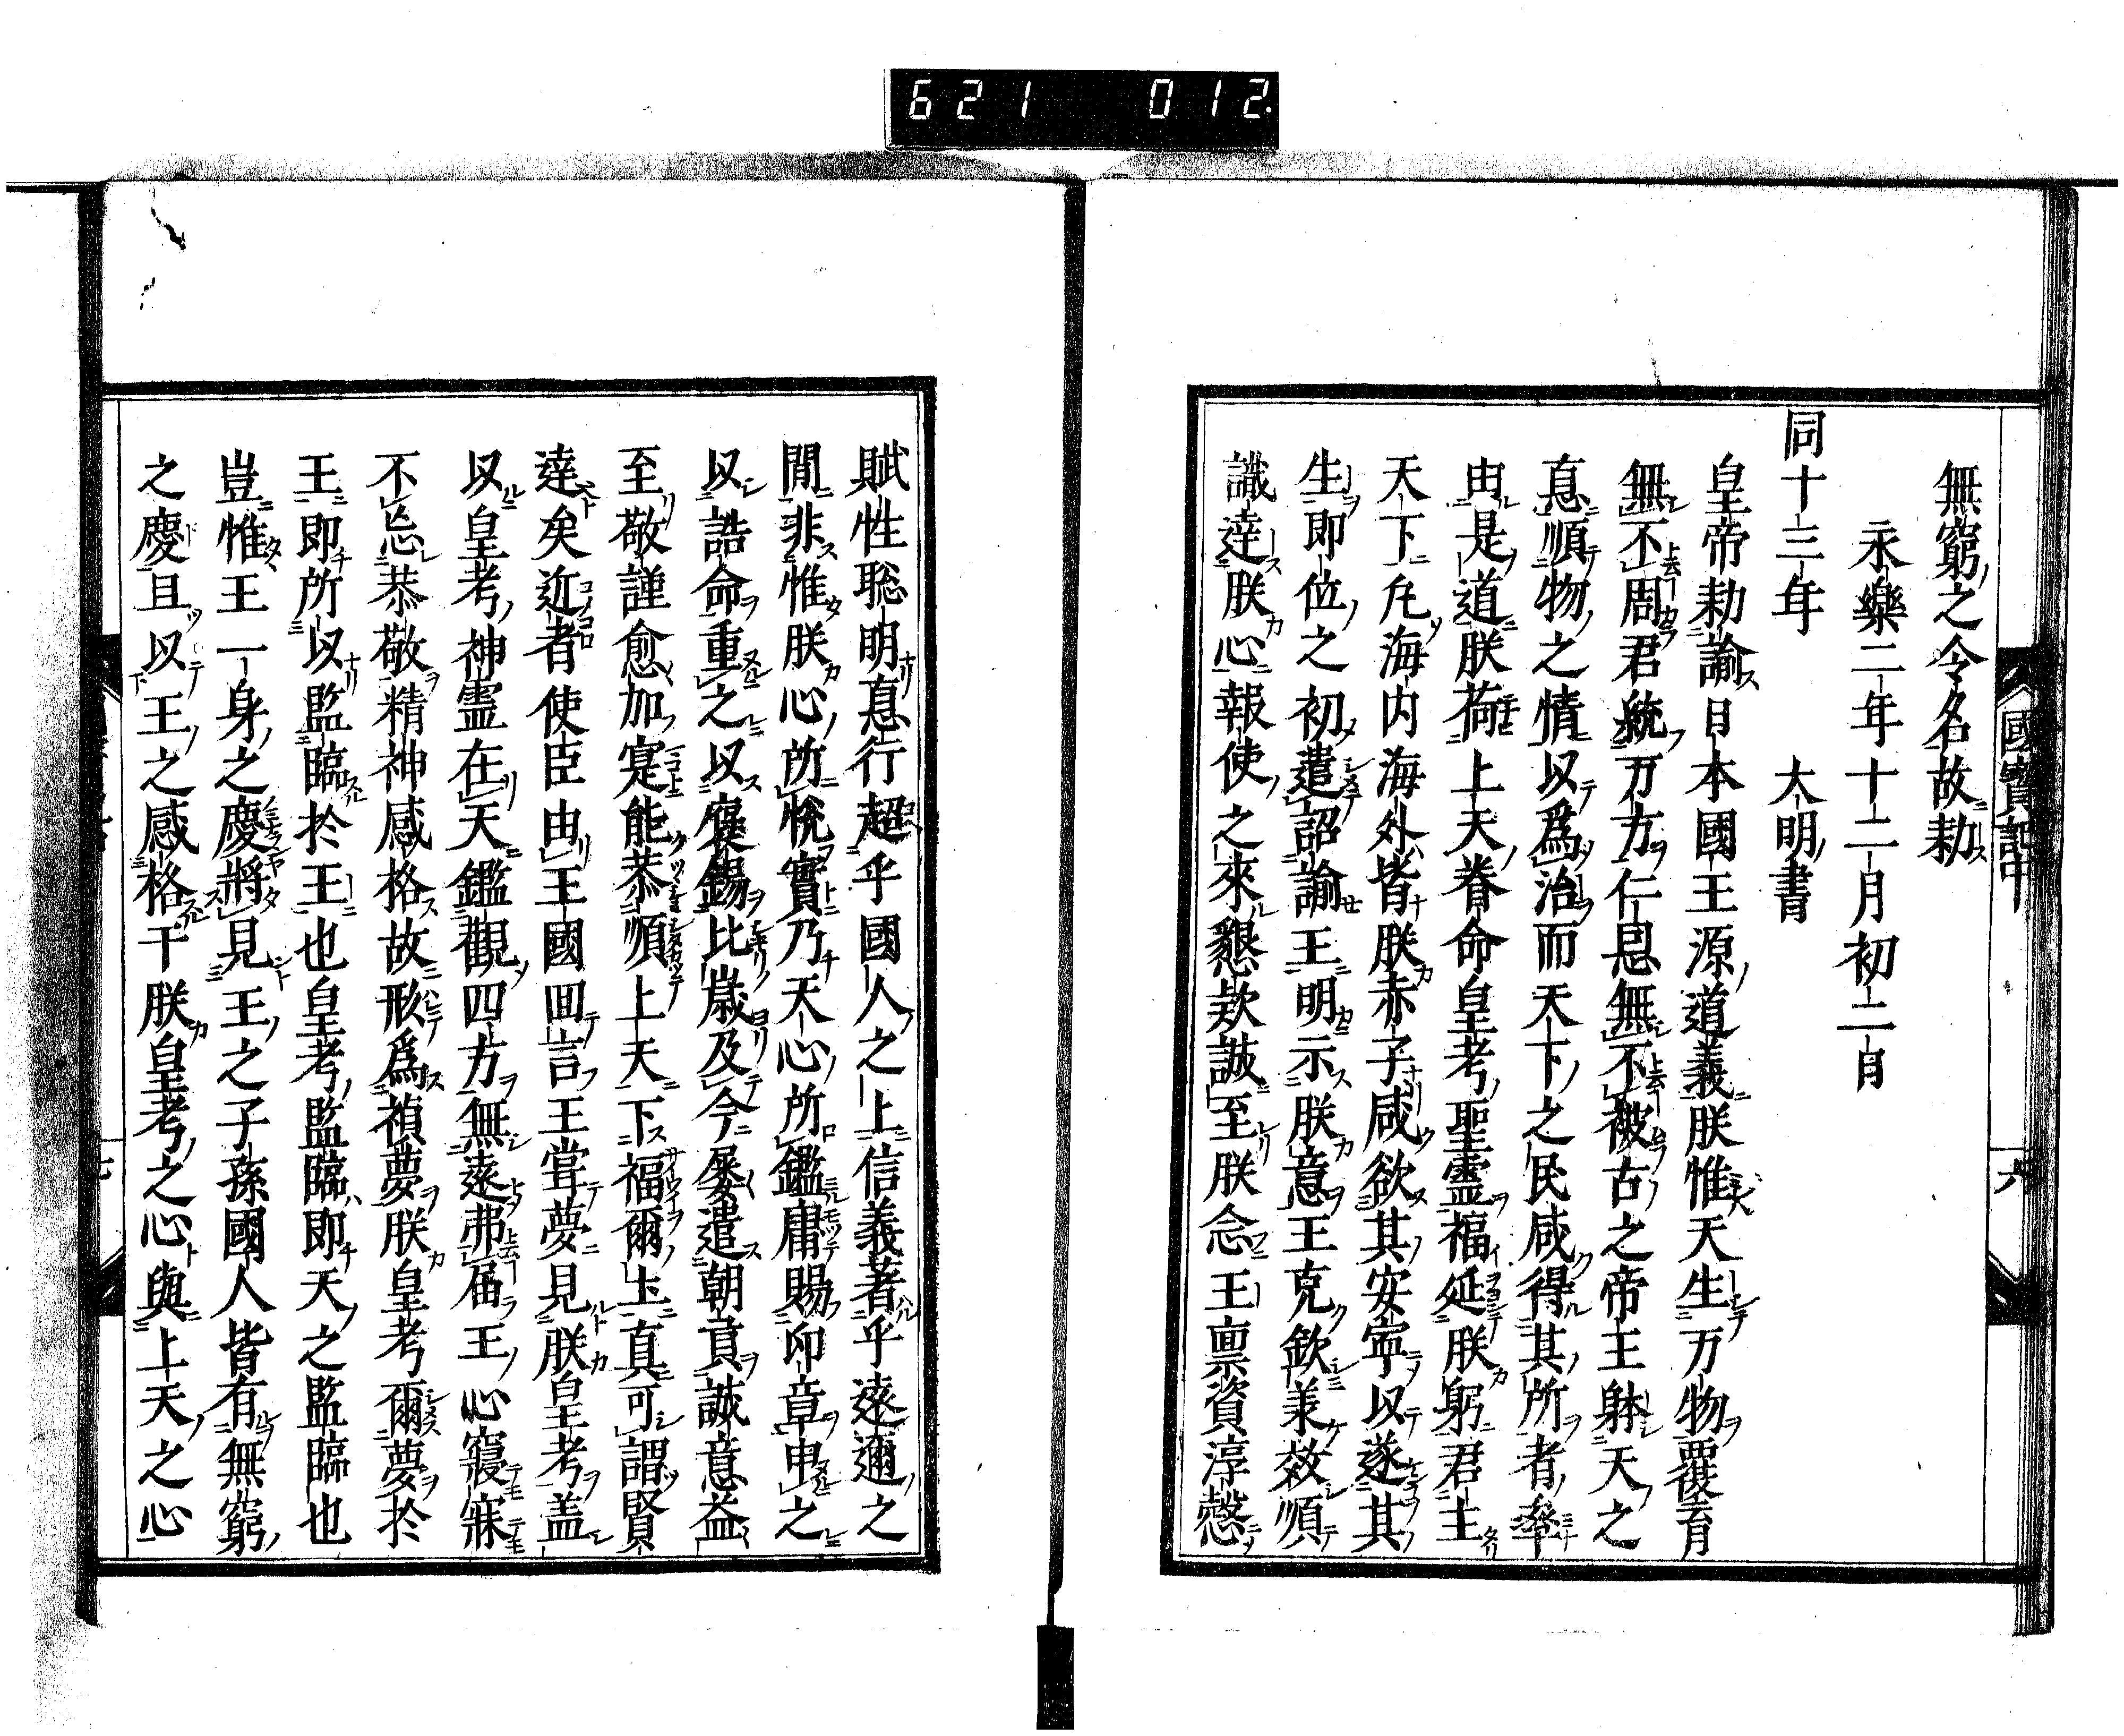 621 012
國寶記中
六
無窮之令名故勅
永樂二年十二月初二日
同十三年 大明書
皇帝勅諭日本國王源道義朕惟天生万物覆育
無不周君統万方仁恩無不被古之帝王躰天之
惪順物之情以爲治而天下之民咸得其所者率
由是道朕荷上天眷命皇考聖靈福延朕躬君主
天下凢海内海外皆朕赤子咸欲其安寧以遂其
生即位之初遣詔諭王明示朕意王克欽羕效順
識達朕心報使之來懇欵誠至朕念王禀資淳慤
賦性聡明惪行超乎國人之上信義著乎遠邇之
間非惟朕心所悅實乃天心所鑑庸賜印章申之
以誥命重之以襃錫比歳及今屡遣朝貢誠意益
至敬謹愈加寔能恭順上天下福爾圡真可謂賢
達矣近者使臣由王國囬言王甞夢見朕皇考盖
以皇考神靈在天鑑觀四方無遠弗届王心寢寐
不忘恭敬精神感格故形爲禎夢朕皇考爾夢於
王即所以監臨於王也皇考監臨即天之監臨也
豈惟王一身之慶將見王之子孫國人皆有無窮
之慶且以王之感格于朕皇考之心與上天之心